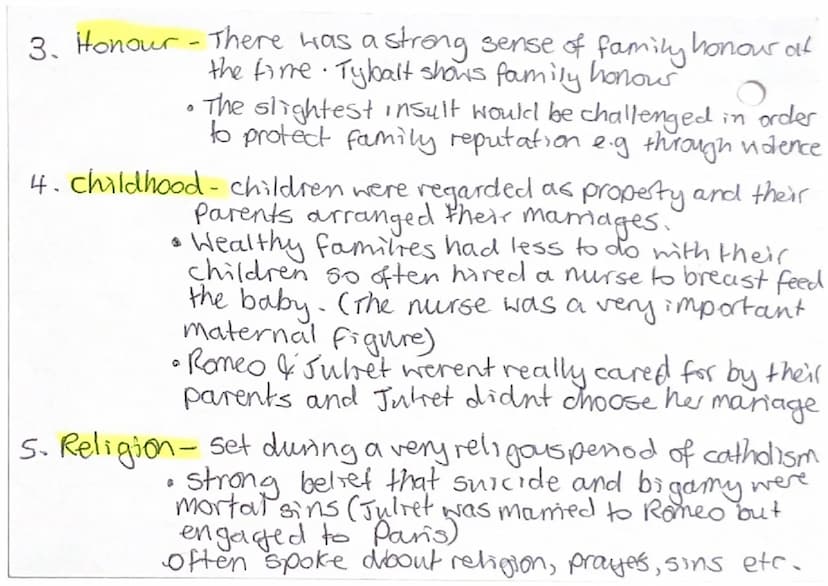 3. Honour - There was a strong sense of family honour at
the time. Tybalt shows family honour
• The slightest insult would be challenged in order
to protect family reputation e.g through violence
4. childhood - children were regarded as property and their
parents arranged their marriages.
• Wealthy families had less to do with their
children so often hired a nurse to breast feed
the baby. (The nurse was a very important
maternal figure)
• Romeo & Juliet werent really cared for by their
parents and Juliet didnt choose her mariage
5. Religion - set during a very religous period of catholism
• strong belief that suicide and bigamy were
mortal sins (Juliet was married to Romeo but
engaged to Paris)
• Often spoke about religion, prayes, sins etc.